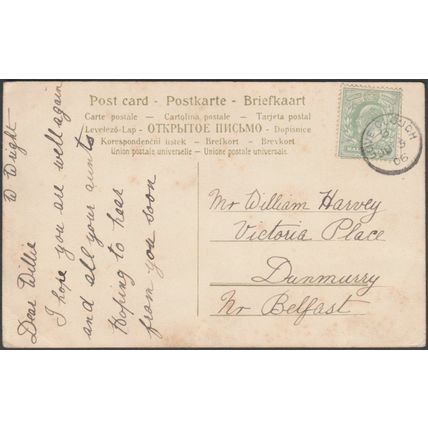 Post card - Postkarte - Briefkaart
Carte postale — Cartolina postale — Tarjeta postal
Levelező-Lap - ОТКРЫТОЕ ПИСЬМО - Dopisnice
Korespondenční lístek - Brefkort - Brevkort
Union postale universelle — Unione postale universale.
Dear Willie
I hope you are well again
and all your aunts
Hoping to hear
from you soon
W Wright
Mr William Harvey
Victoria Place
Dunmurry
Nr Belfast
06